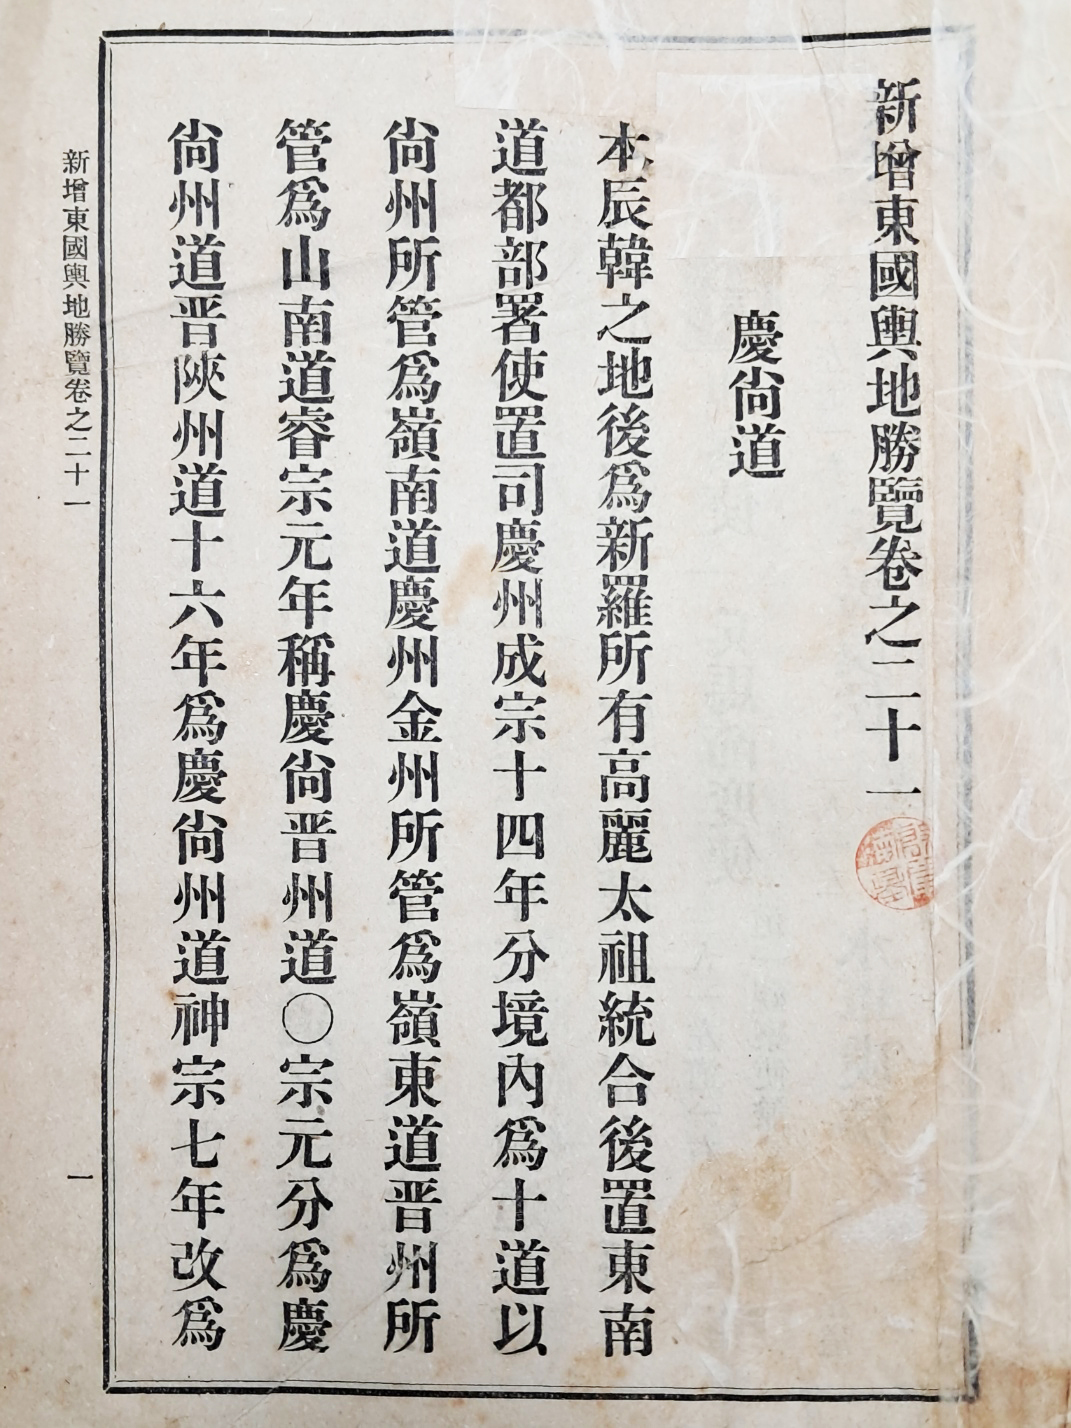 新增東國輿地勝覽卷之二十一
慶尙道
本辰韓之地後爲新羅所有高麗太祖統合後置東南
道都部署使置司慶州成宗十四年分境內爲十道以
尙州所管爲嶺南道慶州金州所管爲嶺東道晋州所
管爲山南道睿宗元年稱慶尙晋州道〇宗元分爲慶
尙州道晋陜州道十六年爲慶尙州道神宗七年改爲
新增東國輿地勝覽卷之二十一
一